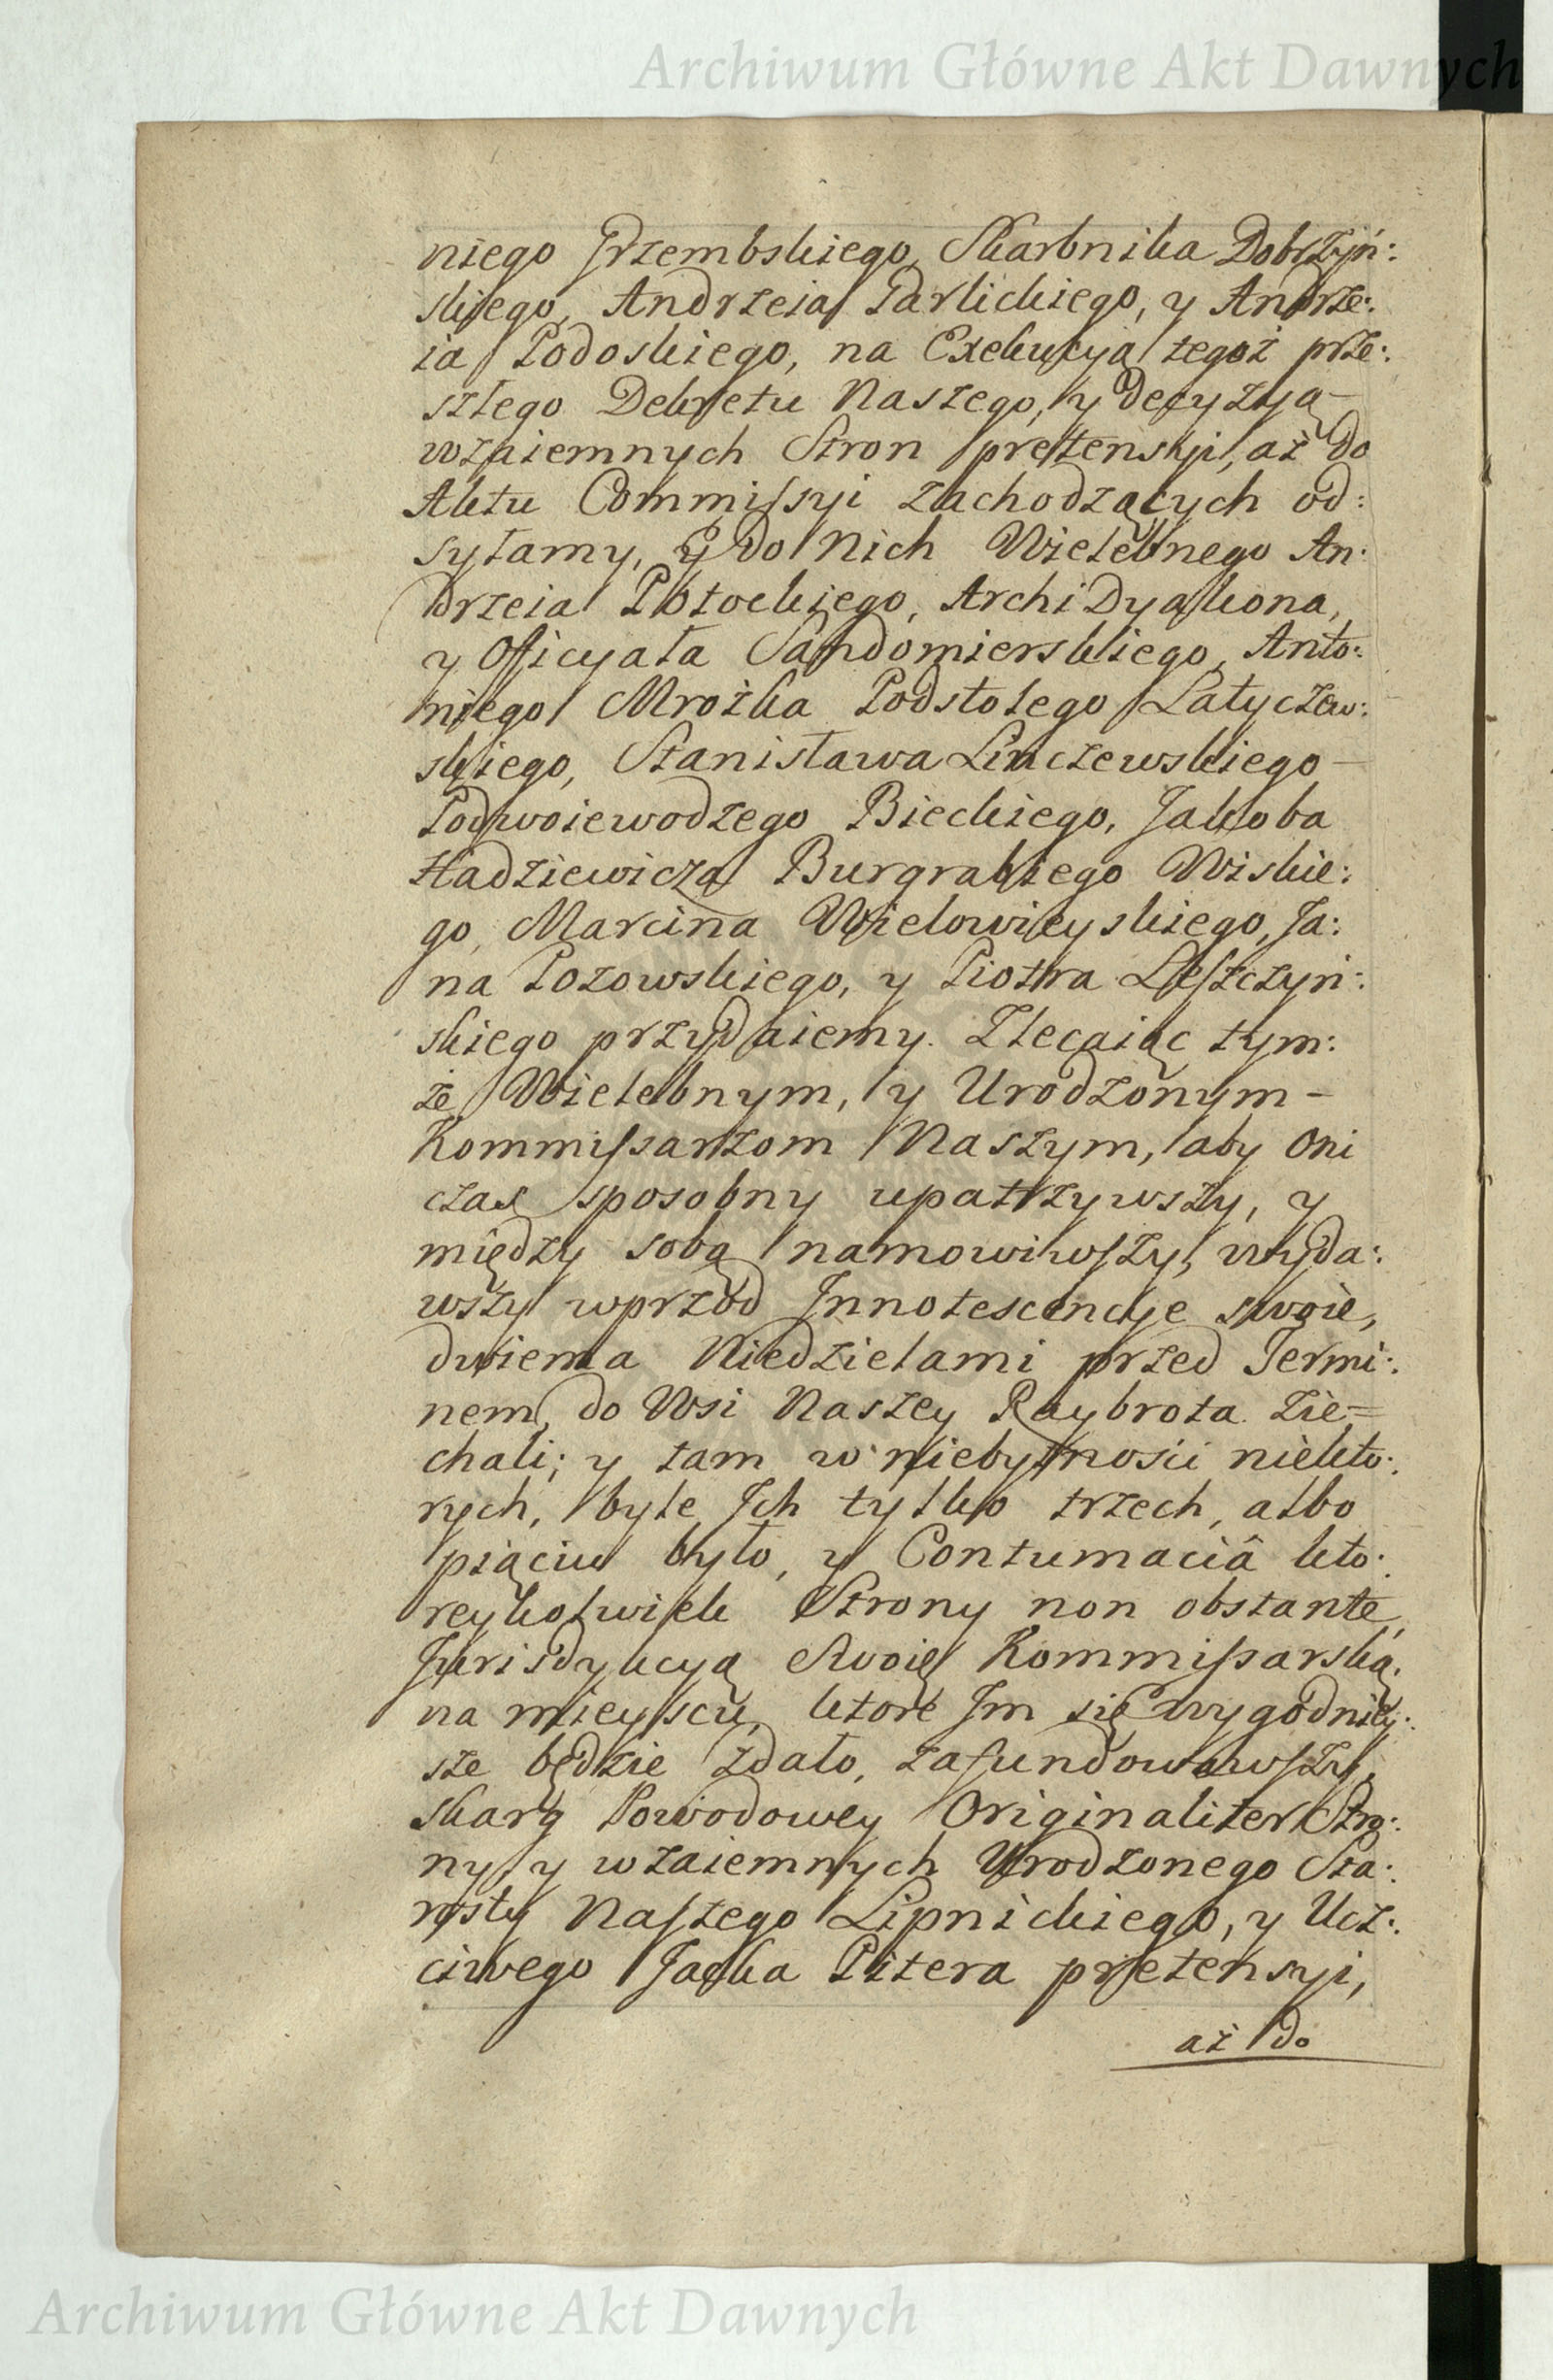 Archiwum Główne Akt Dawnych
niego Grzembskiego, Skarbnika Dobrzyń:
skiego, Andrzeia Darlickiego, y Andrze:
ia Podoskiego, na Exekucyą tegoż prze:
szłego Dekretu Naszego, y decyzyą –
wzaiemnych Stron pretensyi, aż do
Aktu Commissyi zachodzących od:
syłamy, y do Nich Wielebnego An:
drzeia Potockiego, ArchiDyakona,
y Oficyała Sandomierskiego, Anto:
niego Mrozka Podstolego Latyczew:
skiego, Stanisława Linczewskiego –
Podwoiewodzego Bieckiego, Jakoba
Hadziewicza Burgrabiego Wiskie:
go, Marcina Wielowieyskiego, Ja:
na Pozowskiego, y Piotra Leszczyń:
skiego przydaiemy. Zlecaiąc tym:
że Wielebnym, y Urodzonym –
Kommissarzom Naszym, aby Oni
czas sposobny upatrzywszy, y
między sobą namowiwszy, wyda:
wszy wprzod Innotescencye swoie,
dwiema Niedzielami przed Termi:
nem, do Wsi Naszey Raybrota zie=
chali; y tam w niebytności niekto:
rych, byle Ich tylko trzech, albo
piąciu było, y Contumaciâ kto:
reykolwiek Strony non obstante,
Jurisdykcyą Swoię Kommissarską,
na mieyscu, ktore Im się wygodniey:
sze będzie zdało, zafundowawszy,
skarg Powodowey Originaliter Stro:
ny, y wzaiemnych Urodzonego Sta:
rosty Naszego Lipnickiego, y Ucz:
ciwego Jacka Pitera pretensyi,
aż do
Archiwum Główne Akt Dawnych